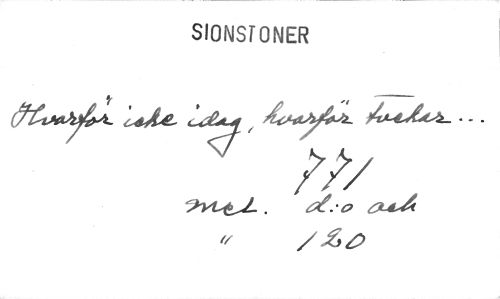 SIONSTONER
Hvarför icke idag, hvarför tvekar...
771
mel. d:o och
" 120